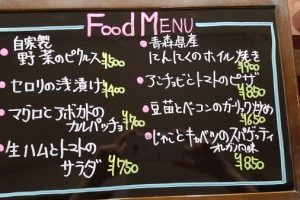 Food MENU
自家製
野菜のピクルス ¥500
セロリの浅漬け ¥400
マグロとアボカドの
カルパッチョ ¥700
生ハムとトマトの
サラダ ¥750
青森県産
にんにくのホイル焼き
アンチョビとトマトのピザ ¥850
豆苗とベーコンのガーリック炒め
¥650
じゃことキャベツのスパゲッティ
¥850